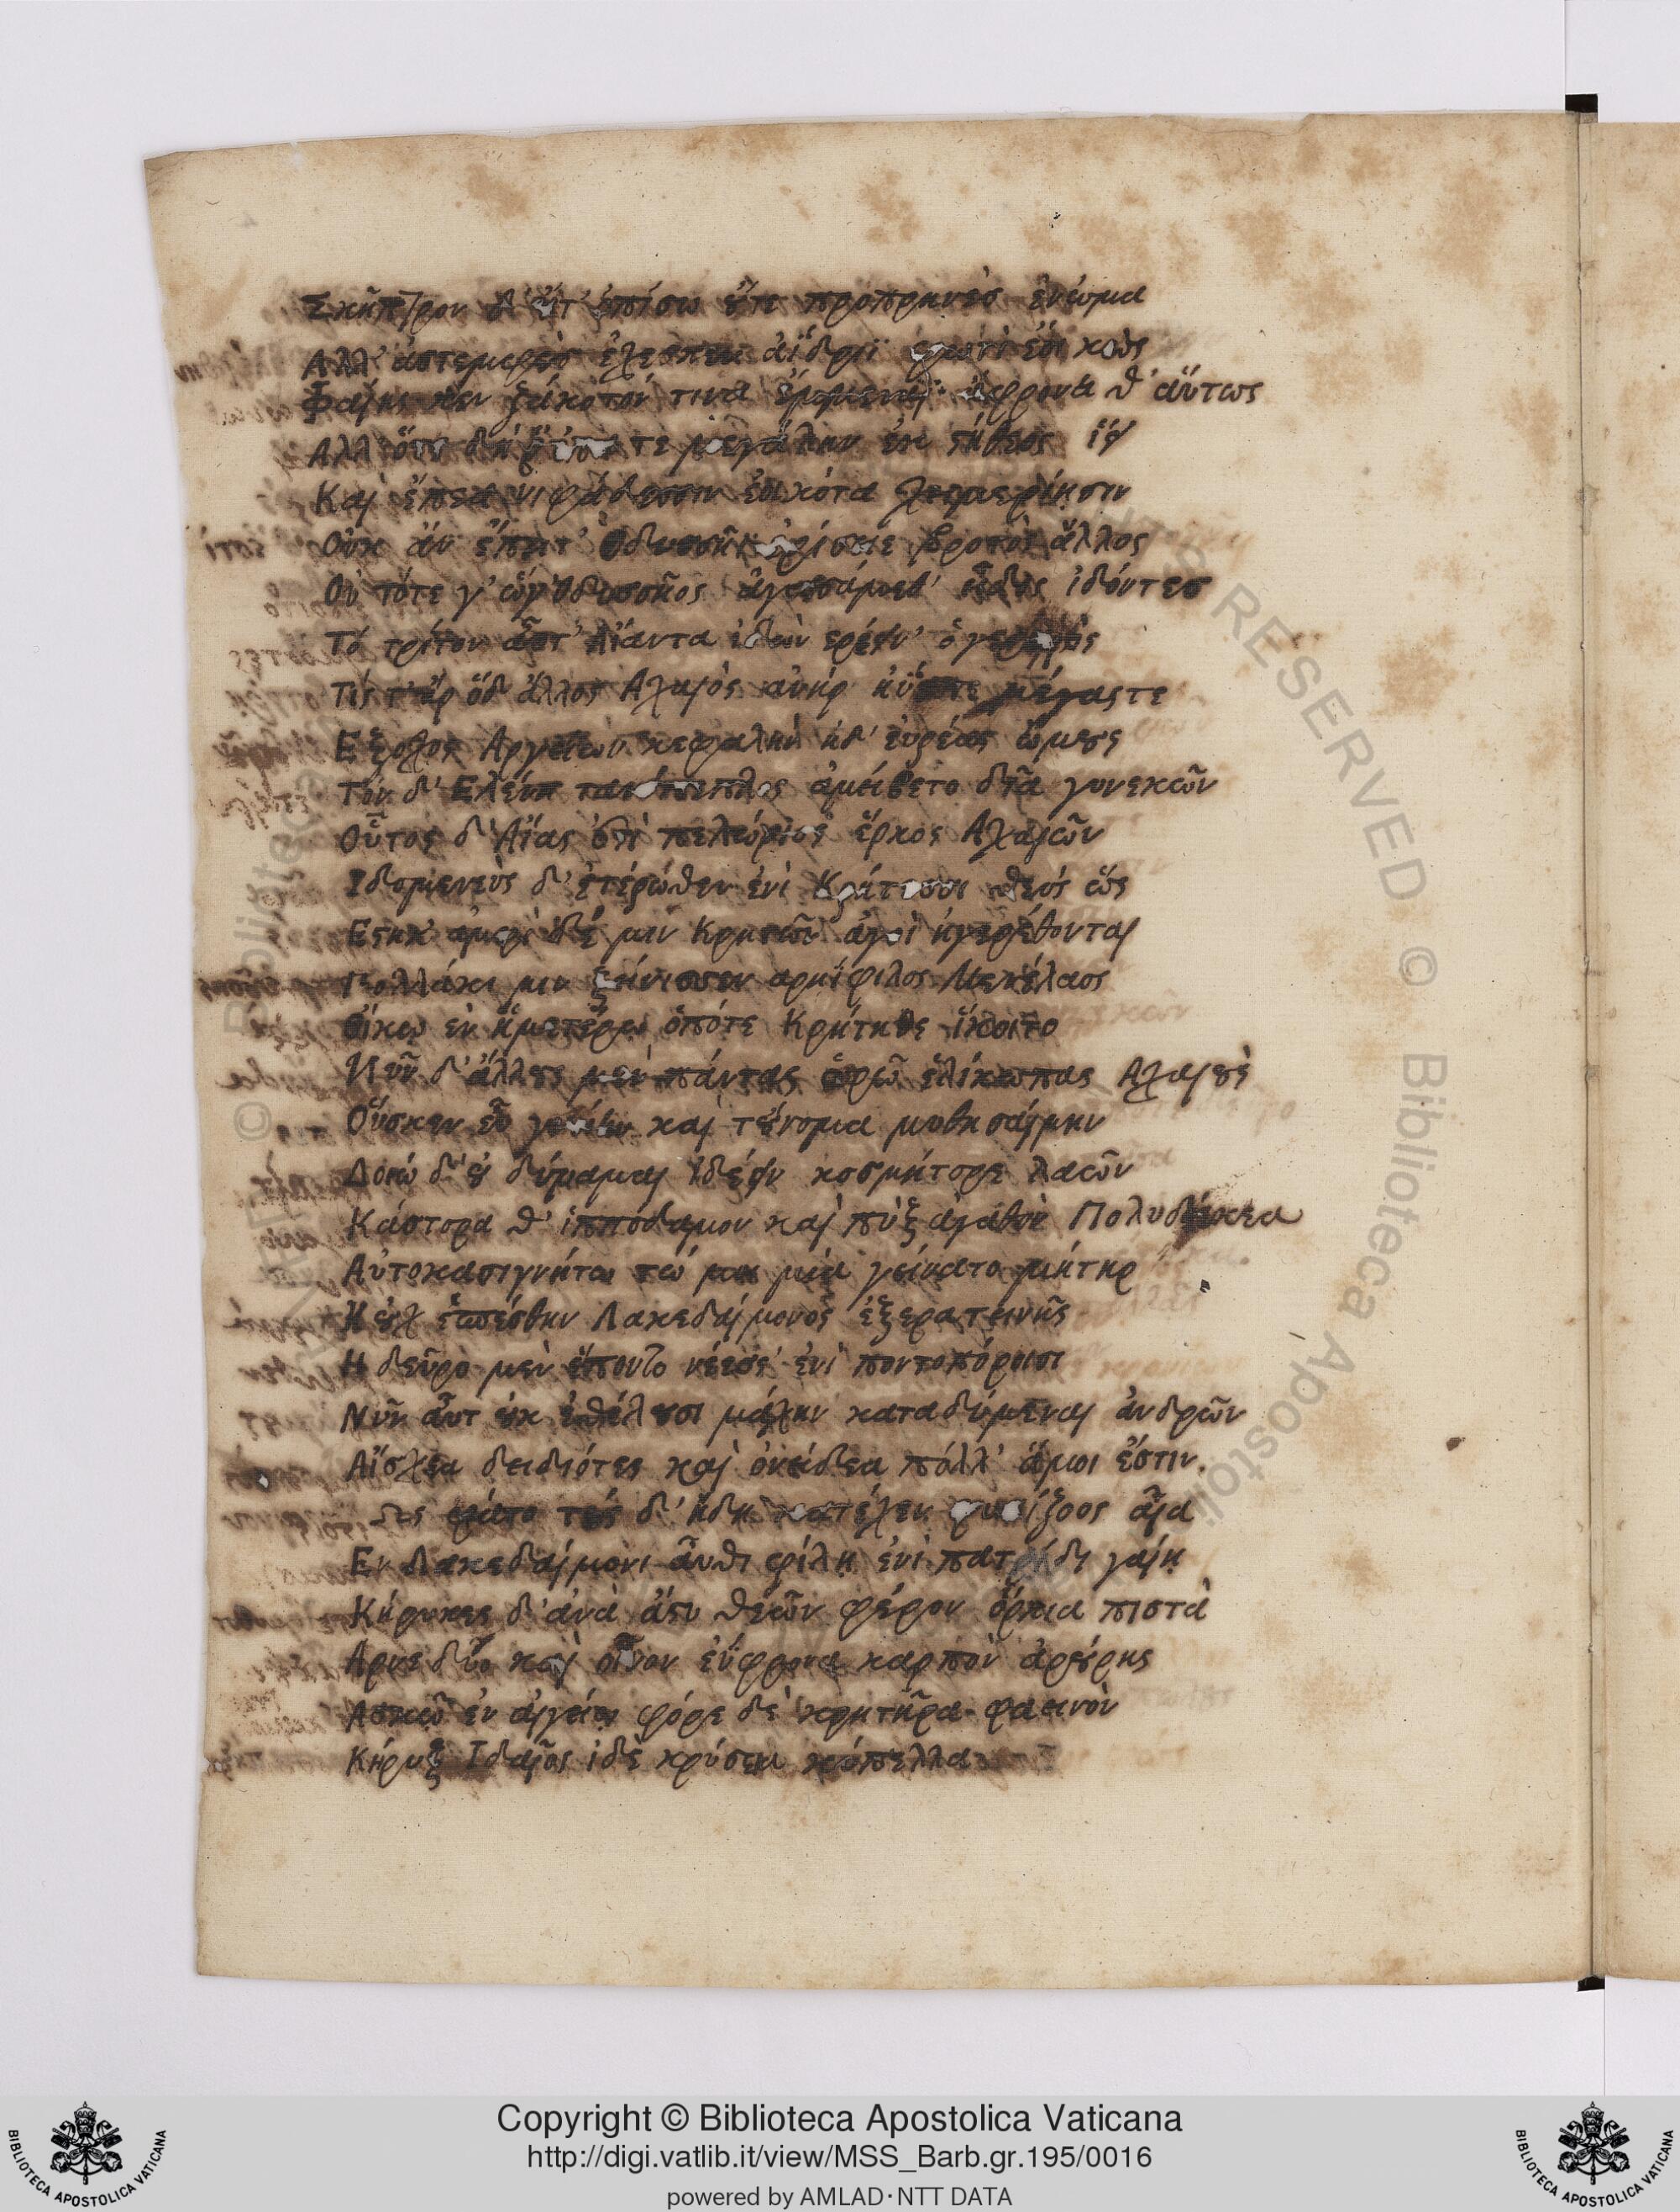 Σκῆπτρον δ' οὔτ' ὀπίσω οὔτε προπρηνὲσ ἐνώμα
Αλλ' ἀστεμφὲσ ἔχεσκεν ἀΐδρϊ φωτὶ ἐοικὼς
Φαίης κεν ζάκοτόν τινα ἔμμεναι ἄφρονα θ' αὔτως
Αλλ' ὅτε δὴ ῥ' τε μεγάλην ἐκ στήθεος ἵει
Καὶ ἔπεα νιφάδεσσιν ἐοικότα χειμερίησιν
Οὐκ ἂν ἔπειτ' Ὀδυσσῆϊ ἐρίσειε βροτὸς ἄλλος
Οὐ τότε γ' ὧδ' Ὀδυσσῆος ἀγασσάμεθ' εἶδος ἰδόντεσ
Τὸ τρίτον αὖτ' Αἴαντα ἰδὼν ερέειν' ὁ γεραιὸς
Τίς τ' ἂρ ὅδ' ἄλλος Αχαιὸς ἀνὴρ ἠΰστε μέγαστε
Εξοχος Αργείων κεφαλὴν ἠδ' εὐρέας ὤμους
Τὸν δ' Ελένη τανύπεπλος ἀμείβετο δῖα γυνεκῶν
Οὗτος δ' Αἴας ἐστὶ πελώριος ἕρκος Αχαιῶν
Ιδομενεὺς δ' ἑτέρωθεν ἐνὶ Κρήτεσσι θεὸς ὣς
Εστηκ' ἀμφὶ δέ μιν Κρητῶν ἀγοὶ ἠγερέθονται
Πολλάκι μιν ξείνισσεν αρηΐφιλος Μενέλαος
οἴκῳ ἐν ἡμετέρῳ ὁπότε Κρήτηθε ἵκοιτο
Νῦν δ' ἄλλους μὲν πάντας ὁρῶ ἑλίκωπας Αχαιοὺς
Οὕσκεν εὖ γνοίην καὶ τοὔνομα μυθησαίμην
Δοιὼ δ' οὐ δύναμαι ἰδέειν κοσμήτορε λαῶν
Κάστορα θ' ἱππόδαμον καὶ πὺξ ἀγαθὸν Πολυδεύκεα
Αὐτοκασιγνήτω τώ μοι μία γείνατο μήτηρ
Η οὐχ ἑσπέσθην Λακεδαίμονος ἐξερατεινῆς
Η δεῦρο μὲν ἕποντο νέεσ' ἐνὶ ποντοπόροισι
Νῦν αὖτ οὐκ ἐθέλουσι μάχην καταδύμεναι ἀνδρῶν
Αἴσχεα δειδιότες καὶ ὀνείδεα πόλλ' ἅμοι ἔστιν.
Ως φάτο τοὺς δ' ἤδη κατέχεν φυσίζοος αἶα
Εν Λακεδαίμονι αὖθι φίλῃ ἐνὶ πατρίδι γαίῃ
Κήρυκες δ' ἀνὰ ἄστυ θεῶν φέρον ὅρκια πιστὰ
Αρνε δύο καὶ οἶνον ἐΰφρονα καρπὸν ἀρούρης
Ασκῷ ἐν αἰγείῳ φέρε δὲ κρητῆρα φαεινὸν
Κήρυξ Ιδαῖος ἰδὲ χρύσεια κύπελλα
Copyright © Biblioteca Apostolica Vaticana
http://digi.vatlib.it/view/MSS_Barb.gr.195/0016
powered by AMLAD·NTT DATA